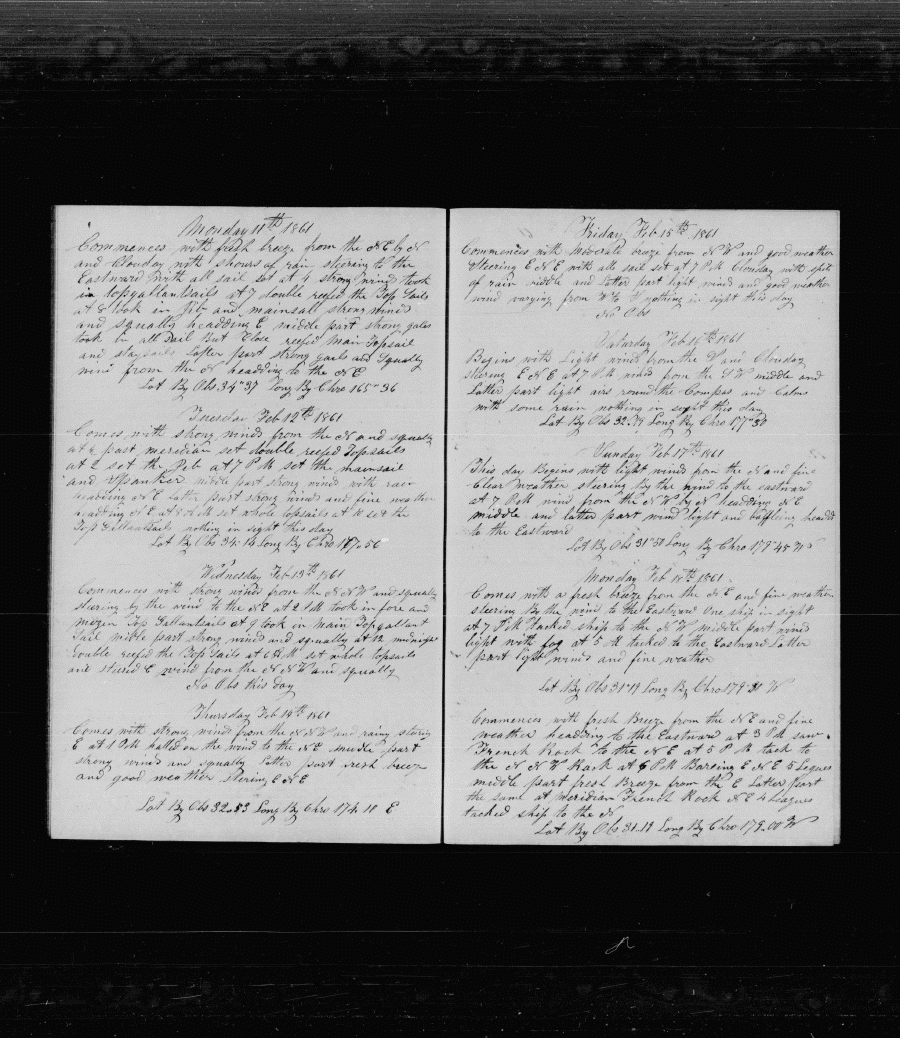 Monday 11th 1861
Commences with fresh breeze from the N E b N
and Clouday with showrs of rain steering to the
Eastward with all sail set at 4 strong wind took
in topgallantsails at 7 double reefed the Top Sails
at 8 took in Jib and mainsail strong winds
and squally headding E middle part strong gales
took in all Sail But Close reefed Main Topsail
and staysails Latter part strong gails and Squally
wind from the N headding to the N E
Lat By Obs 34"37 Long By Chro 165"36
Tuesday Feb 12th 1861
Comes with strong winds from the N and squally
at past meridian set double reefed Topsails
at 2 set the Jeb at 7 P M set the mainsail
and Spanker middle part strong wind with rain
heading N E latter part strong winds and fine weather
headding N E at A M set whole topsails at set the
Top Gallantsails nothing in sight this day
Lat By Obs 34.14 Long By Chro 56
Wednesday Feb 13th 1861
Commences with strong winds from the N N W and squally
stering by the wind to the N E at 2 P M took in fore and
mizen Top Gallantsails at 9 took in Main Topgallant
Sail midle part strong winds and squally at 12 midnight
double reefed the Top Sails at 6 A M set whole topsails
and stered E wind from the N N W and squally
No Obs this day
Thursday Feb 14th 1861
Comes with strong winds from the N N W and rainy stering
E at 1 P M halled on the wind to the N E middle part
strong winds and squally latter part fresh breeze
and good weather stering E N E
Lat By Obs 32.53 Long By Chro 174.18 E
Friday Feb 15th 1861
Commences with Moderate breeze from N W and good weather
Steering E N E with all sail set at 7 P M Clouday with spits
of rain middle and latter part light winds and good weather
wind varying from W to nothing in sight this day
No Obs
Saturday Feb 16th 1861
Begins with Light winds from the and Clouday
stering E N E at 7 P M wind from the S W middle and
Latter part light airs round the Compas and Calms
with some rain nothing in sight this day
Lat By Obs 32. Long By Chro 177"50
Sunday Feb 17th 1861
This day Begins with light wind from the N and fine
Clear weather steering by the wind to the eastward
at 7 P M wind from the N W by N headding N E
middle and latter part wind light and baffleing headd
to the Eastward
Lat By Obs 31"50 Long By Chro 179"45 W
Monday Feb 18th 1861
Comes with a fresh breeze from the N E and fine weather
steering By the wind to the Eastward One ship in sight
at 7 P M tacked ship to the N W middle part wind
light with fog at 5 M tacked to the Eastward Latter
part light wind and fine weather
Lat By Obs 31"19 Long By Chro 179"31 W
Commences with fresh Breeze from the N E and fine
weather headding to the Eastward at 3 P M saw
French Rock to the N E at 5 P M tack to
the N N W Rack at 6 P M Bareing E N E 5 Legues
middle part fresh Breeze from the E Latter part
the same at Meridian French Rock N E 4 Leagues
tacked ship to the N
Lat By Obs 31.19 Long By Chro 179.00 W